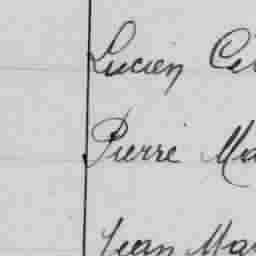 Lucien Cé
Pierre Ma
Jean Mar